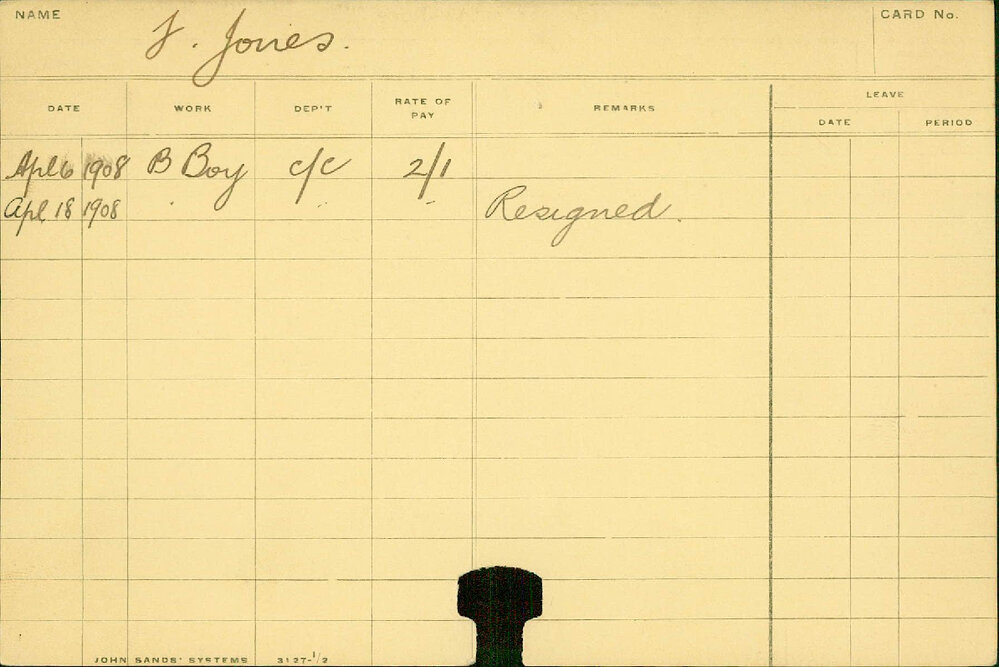 NAME J. Jones. CARD No.
LEAVE
DATE WORK DEP'T RATE OF PAY REMARKS DATE PERIOD
Apl 6 1908 B Boy c/c 2/1
Apl 18 1908 " " " Resigned.
JOHN SANDS' SYSTEMS 3127-1/2